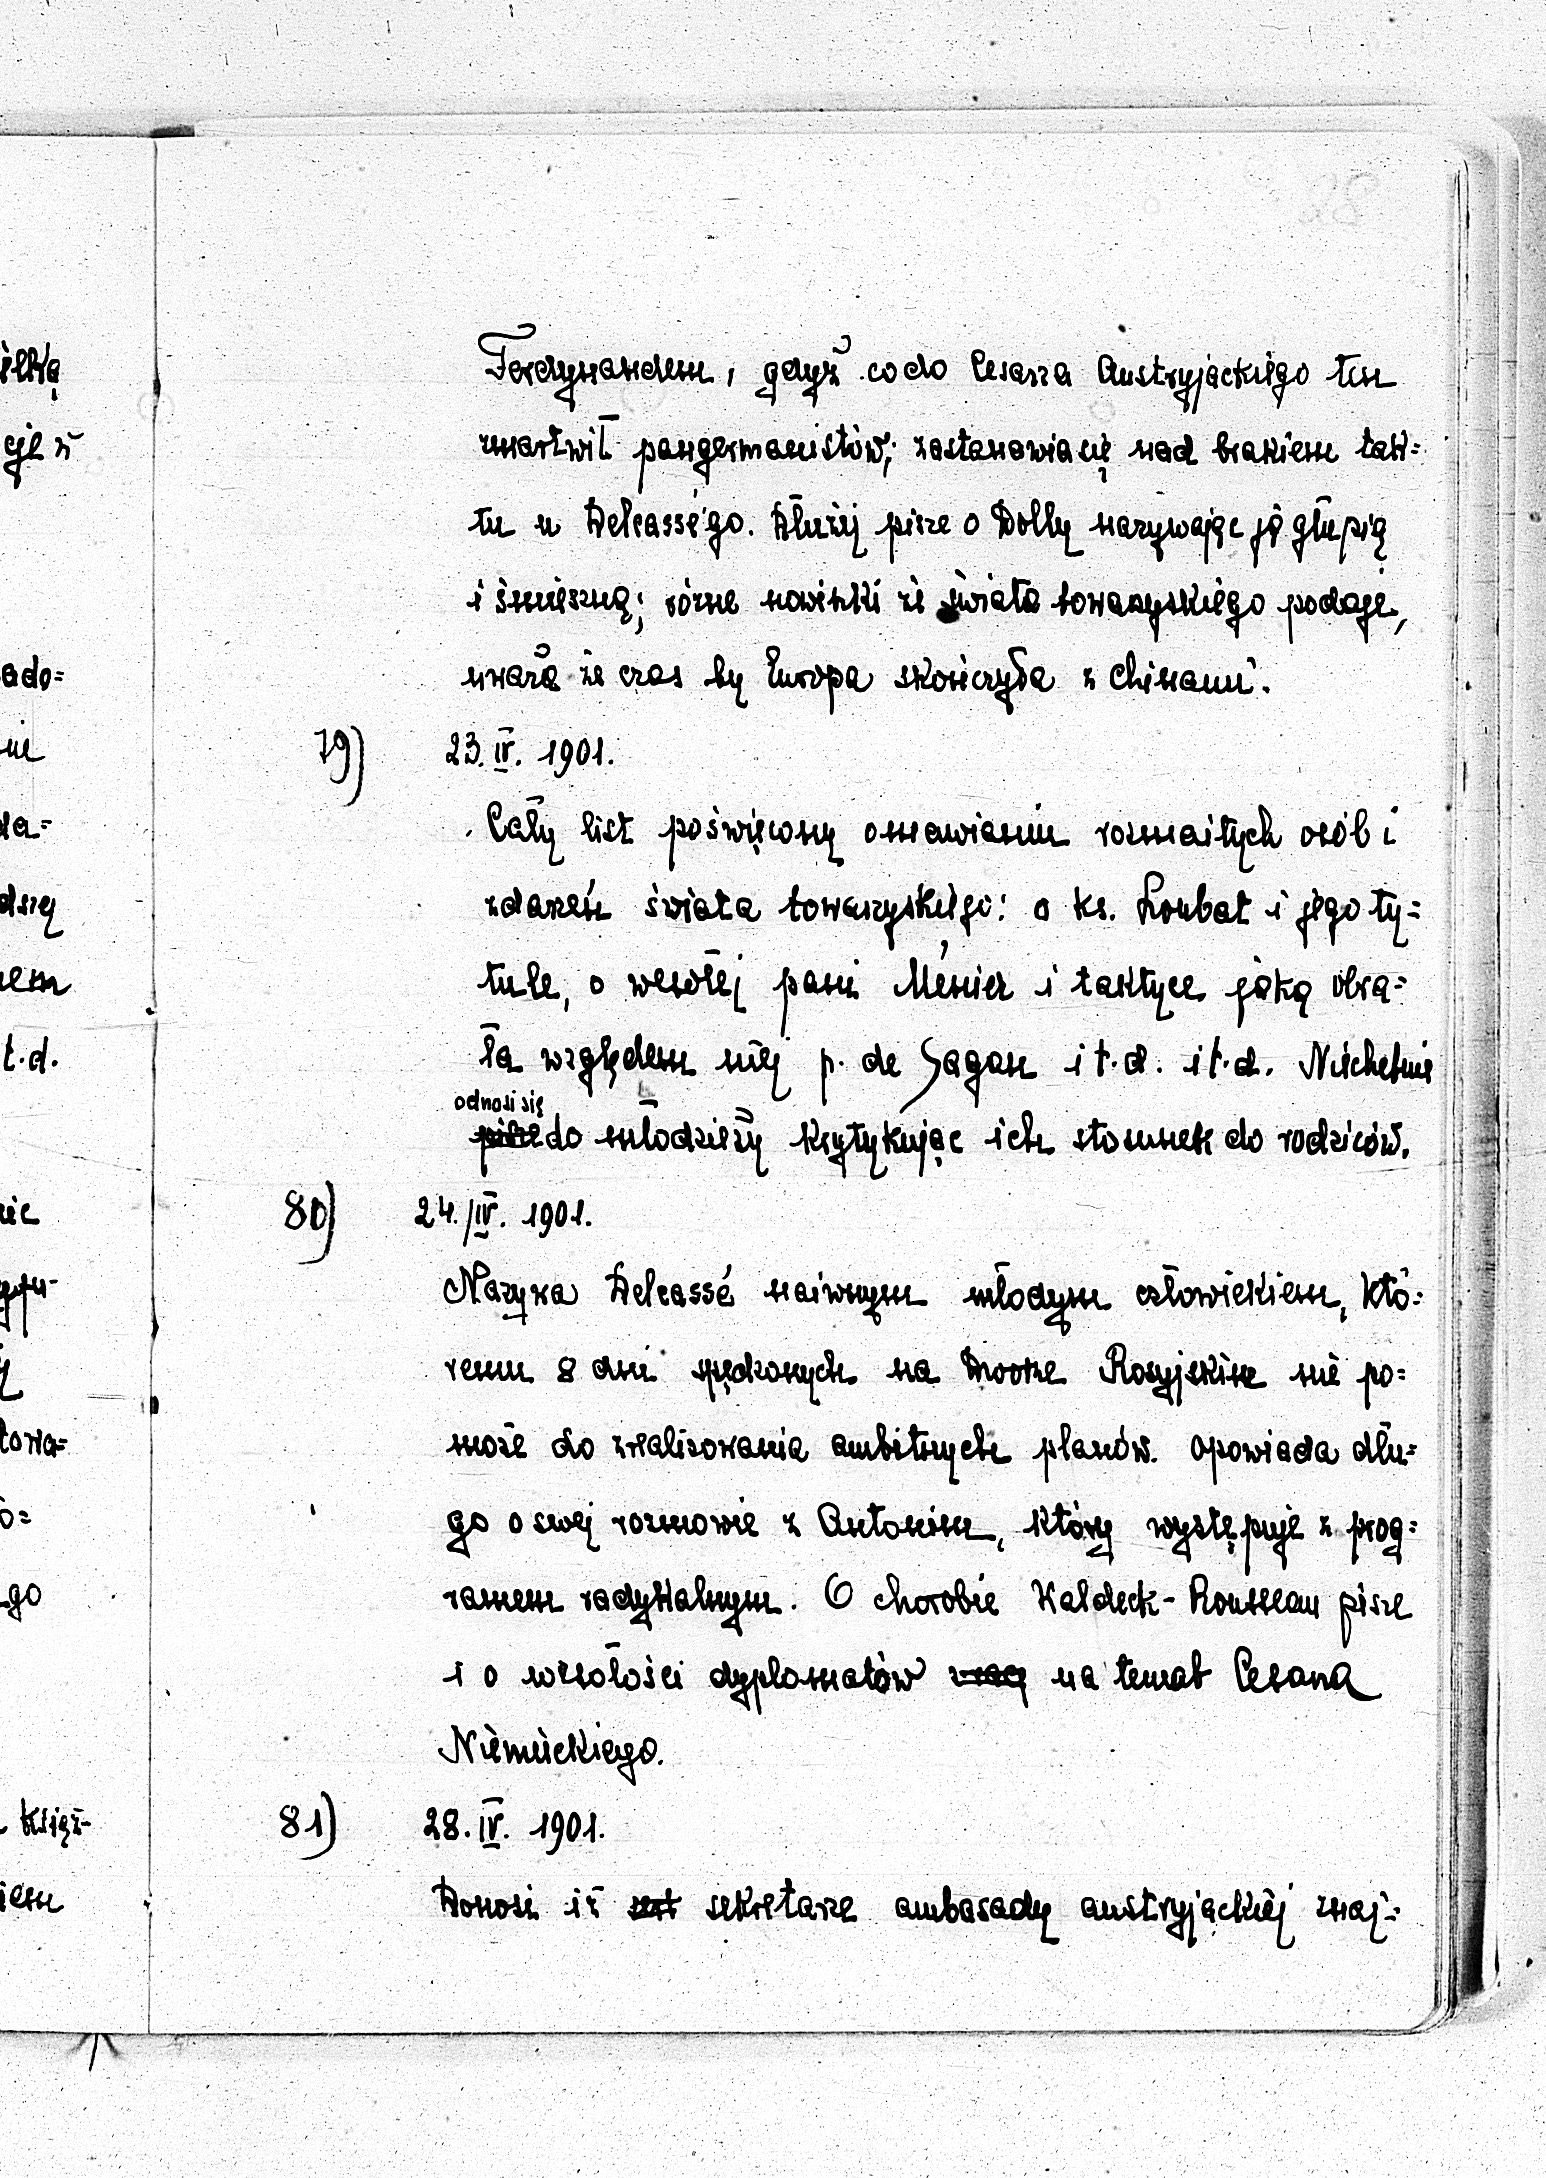 Ferdynandem, gdyż co do Cesarza Austryjackiego ten
zmartwił pangermanistów; zastanawia się nad brakiem tak=
tu u Delcassé'go. Dłużej pisze o Dolly nazywając ją głupią
i śmieszną; różne nowinki ze świata towarzyskiego podaje,
uważa że czas by Europa skończyła z Chinami.
79) 23. IV. 1901.
Cały list poświęcony omawianiu rozmaitych osób i
zdarzeń świata towarzyskiego: o ks. Loubat i jego ty=
tule, o wesołej pani Ménier i taktyce jaką obra=
ła względem niej p. de Sagan i t.d. i t.d. Niechętnie
odnosi się
pisze do młodzieży krytykując ich stosunek do rodziców.
80) 24./IV. 1901.
Nazywa Delcassé naiwnym młodym człowiekiem, któ=
remu 8 dni spędzonych na Dworze Rosyjskim nie po=
może do zrealizowania ambitnych planów. Opowiada dłu=
go o swej rozmowie z Antonim, który występuje z prog=
ramem radykalnym. O chorobie Waldeck-Rousseau pisze
i o wesołości dyplomatów na temat Cesarza
Niemieckiego.
81) 28. IV. 1901.
Donosi iż sekretarze ambasady austryjackiej znaj=